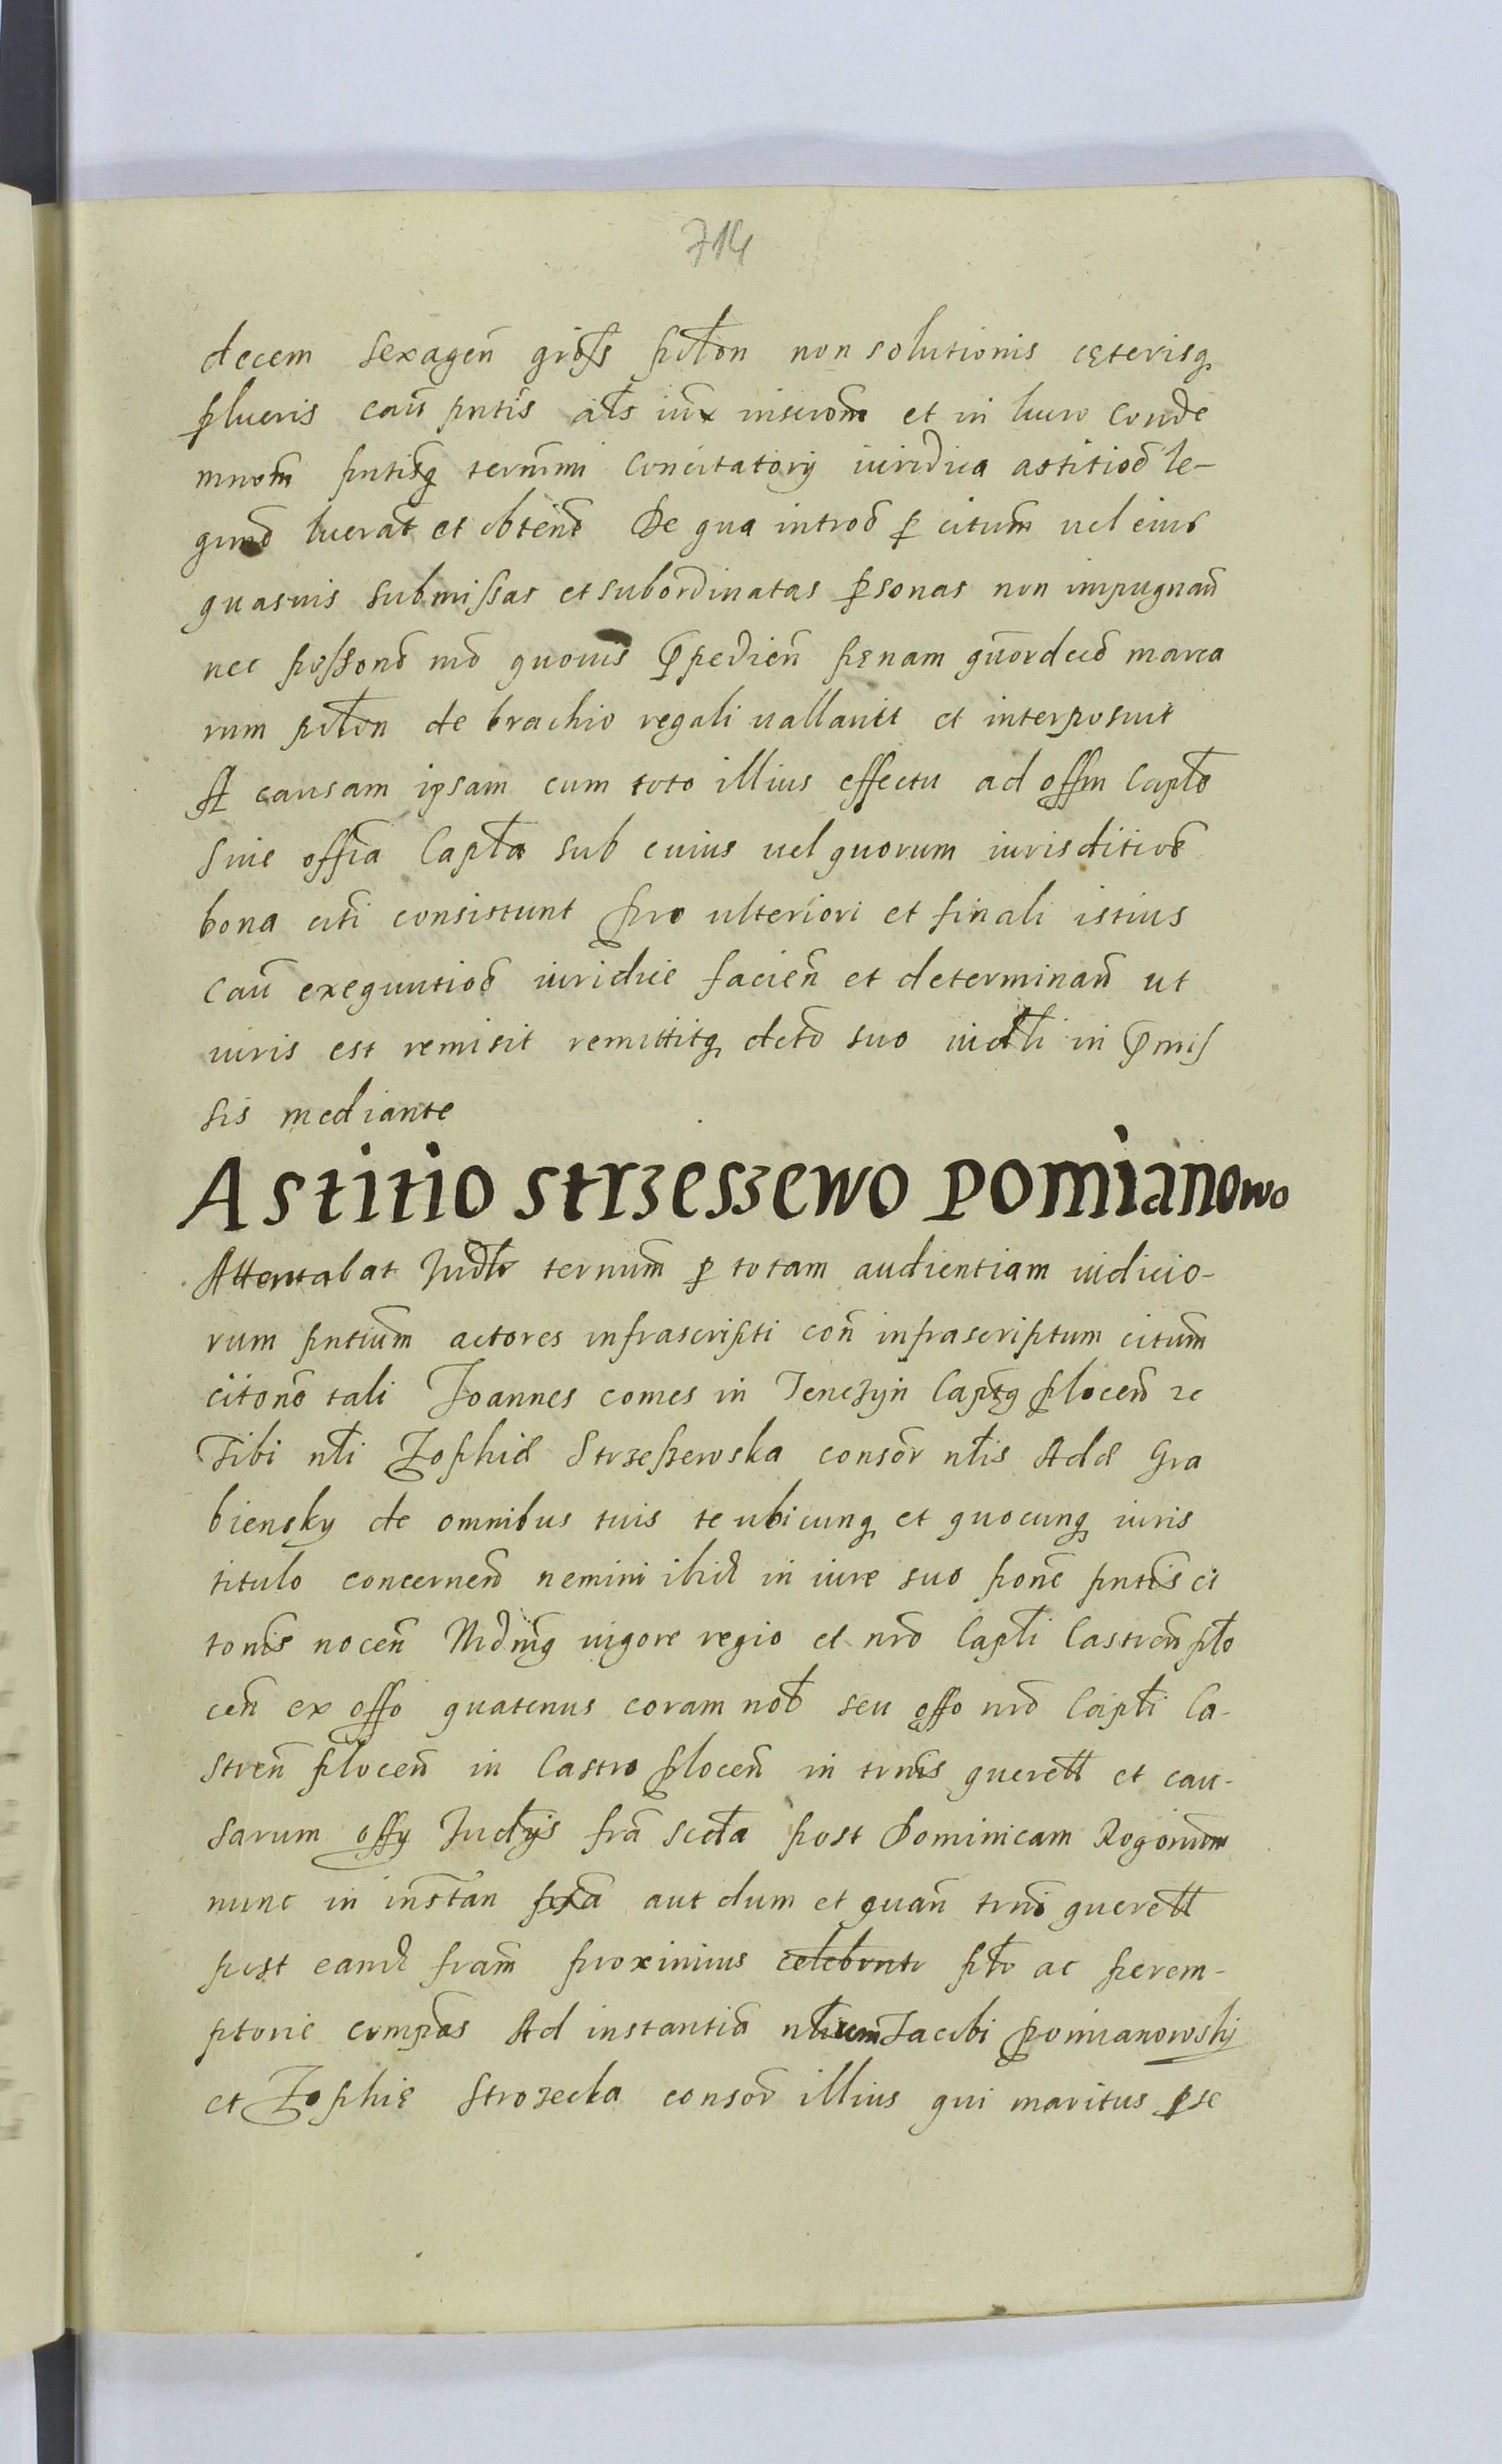 714
decem sexagen̄ gross polon non solutionis cęterisq
p lucris caū pntis als iux inscrōm et in lucro conde
mnōm pntisq termini concitatorÿ iuridica astitioē le-
gimē lucrat et obtent De qua introē p citum uel eius
quasuis submissas et subordinatas psonas non impugnan̄
nec possone mō quouis p̄pedien̄ pęnam quordecē marca
rum polon de brachio regali uallauit et interposuit
A causam ipsam cum toto illius effectu ad offm Capto
siue offia Capta sub cuius uel quorum iurisditioē
bona citi consistunt pro ulteriori et finali istius
caū exequutioē iuridice facien̄ et determinan̄ ut
iuris est remisit remittitq decto suo iudli in p̄mis
sis mediante
Astitio strzeszewo pomianowo
Attentabat Judlr termum p totam audientiam iudicio-
rum pntium actores infrascripti con̄ infrascriptum citum
citone tali Joannes comes in Tenczyn Captq plocen̄ rc
Tibi nli Zophiæ Strzeszewska consor nlis Adæ Gra
biensky de omnibus tuis te ubicunq et quocunq iuris
titulo concernen̄ nemini ibid in iure suo pone pntis ci
tonis nocen̄ Mdmq uigore regio et nrō Capli Castren̄ plo
cen̄ ex offo quatenus coram nob seu offo nrō Capli Ca-
stren̄ plocen̄ in Castro plocen̄ in trmis querell et cau-
sarum offy Judijs fra scda post Dominicam Rogonum
nunc in instan pxa aut dum et quan̄ trmi querell
post eand fram proximius celebrntr plr ac perem-
ptorie compas Ad instantiā nlium Jacobi pomianowskÿ
et Zophię Strozecka consor illius qui maritus p se